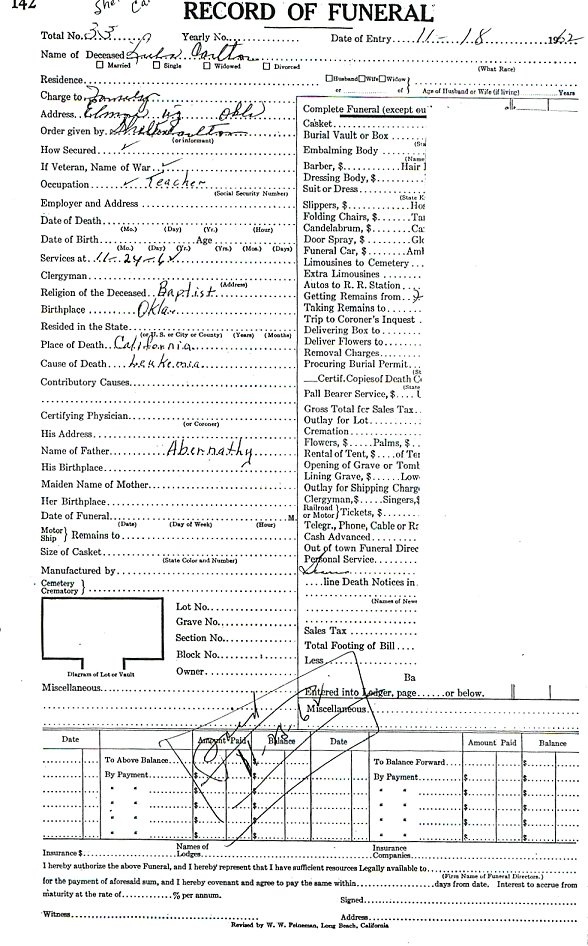 142
RECORD OF FUNERAL
Total No. Yearly No. Date of Entry 11-18 1962
Name of Deceased Carlton
☐ Married ☐ Single ☐ Widowed ☐ Divorced (What Race)
Residence ☐Husband☐Wife☐Widow
or of Age of Husband or Wife (if living) Years
Charge to Family
Address Okla
Order given by
(or informant)
How Secured ✓
If Veteran, Name of War ✓
Occupation ✓ Teacher
(Social Security Number)
Employer and Address
Date of Death
(Mo.) (Day) (Yr.) (Hour)
Date of Birth Age
(Mo.) (Day) (Yr.) (Yrs.) (Mos.) (Days)
Services at 11-24-62
Clergyman
(Address)
Religion of the Deceased Baptist
Birthplace Okla
Resided in the State
(or U. S. or City or County) (Years) (Months)
Place of Death California
Cause of Death Leukemia
Contributory Causes
Certifying Physician
(or Coroner)
His Address
Name of Father Abernathy
His Birthplace
Maiden Name of Mother
Her Birthplace
Date of Funeral M.
(Date) (Day of Week) (Hour)
Motor
Ship } Remains to
Size of Casket
(State Color and Number)
Manufactured by
Cemetery
Crematory }
Lot No.
Grave No.
Section No.
Block No.
Owner
Diagram of Lot or Vault
Miscellaneous
Complete Funeral (except ou
Casket
Burial Vault or Box
(Sta
Embalming Body
(Name
Barber, $ Hair
Dressing Body, $
Suit or Dress
(State K
Slippers, $ Hos
Folding Chairs, $ Tar
Candelabrum, $ Ca
Door Spray, $ Glo
Funeral Car, $ Aml
Limousines to Cemetery
Extra Limousines
Autos to R. R. Station
Getting Remains from
Taking Remains to
Trip to Coroner's Inquest
Delivering Box to
Deliver Flowers to
Removal Charges
Procuring Burial Permit
(St
Certif.Copiesof Death C
(State
Pall Bearer Service, $
Gross Total for Sales Tax
Outlay for Lot
Cremation
Flowers, $ Palms, $
Rental of Tent, $ of Te
Opening of Grave or Tomb
Lining Grave, $ Low
Outlay for Shipping Charg
Clergyman,$ Singers,$
Railroad
or Motor } Tickets, $
Telegr., Phone, Cable or Ra
Cash Advanced
Out of town Funeral Direc
Personal Service
line Death Notices in
(Names of News
Sales Tax
Total Footing of Bill
Less
Ba
Entered into Ledger, page or below.
Miscellaneous
Date Amount Paid Balance Date Amount Paid Balance
To Above Balance $ To Balance Forward $
By Payment $ $ By Payment $
" " $ $ " " $
" " $ $ " " $
" " $ $ " " $
" " $ $ " " $
Insurance $ Names of Lodges Insurance Companies
I hereby authorize the above Funeral, and I hereby represent that I have sufficient resources Legally available to
(Firm Name of Funeral Directors.)
for the payment of aforesaid sum, and I hereby covenant and agree to pay the same within days from date. Interest to accrue from
maturity at the rate of % per annum. Signed
Witness Address
Revised by W. W. Peineman, Long Beach, California